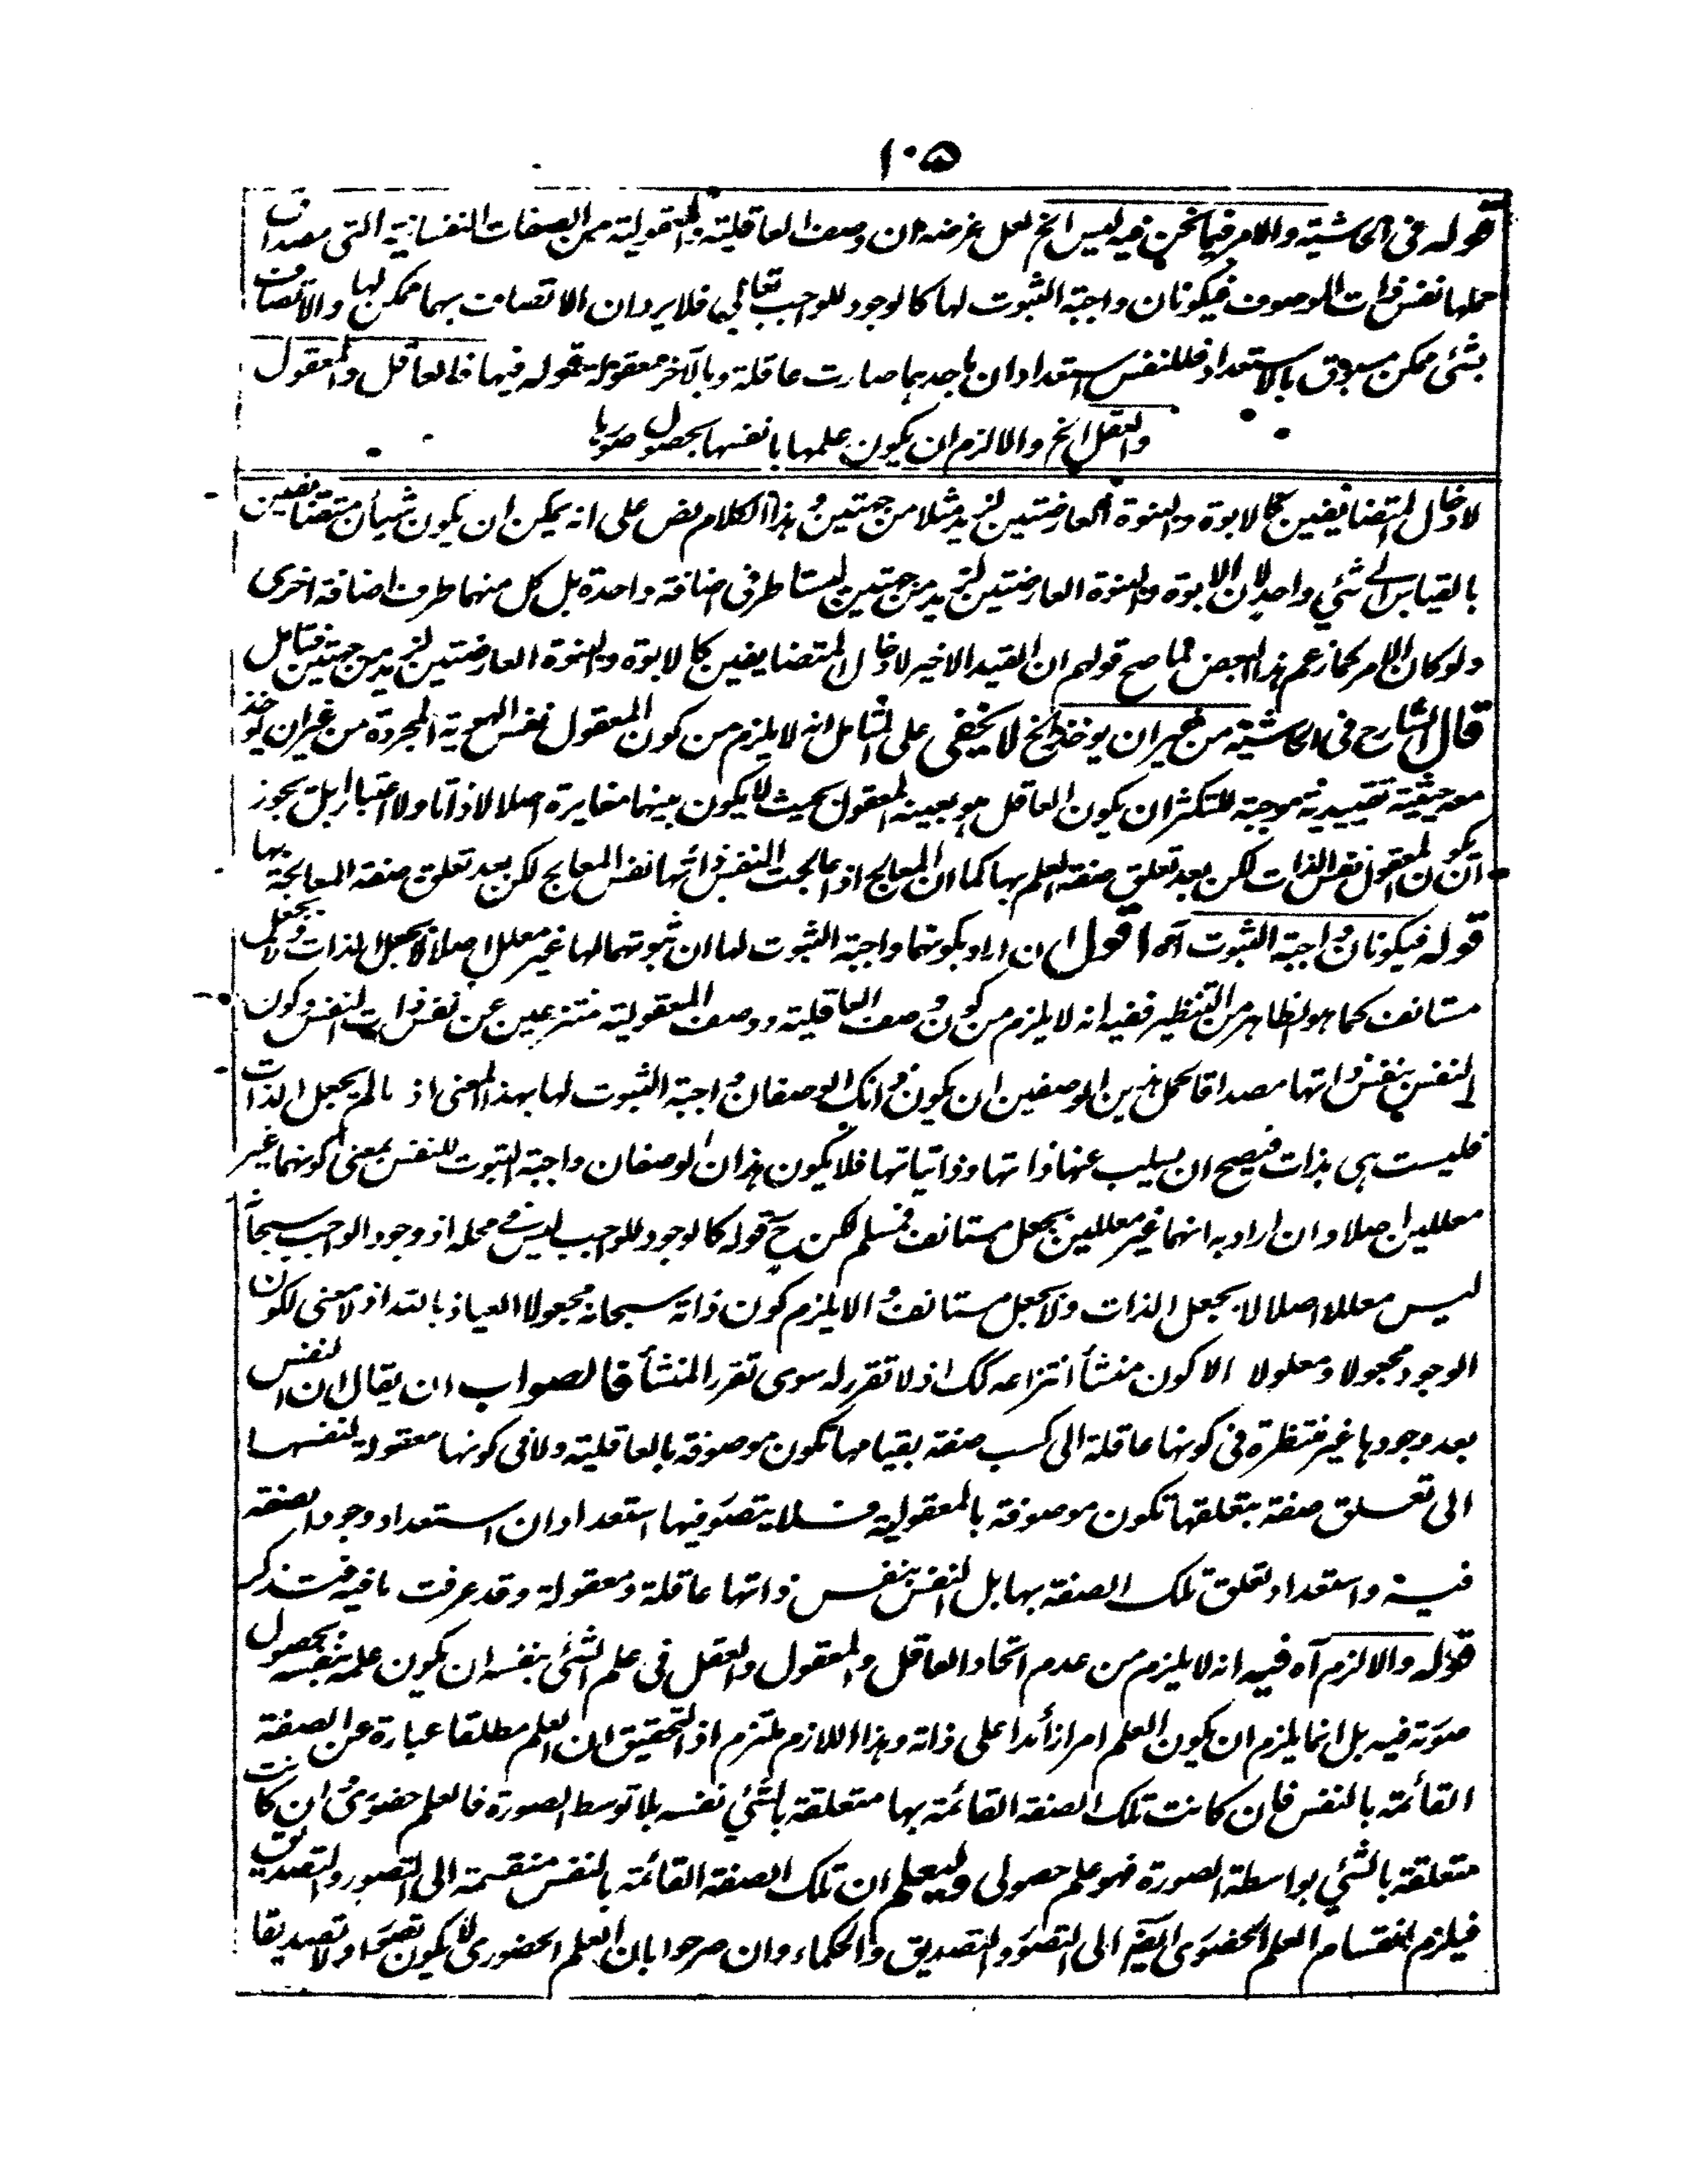 ١٠۵
قوله فى الحاشية والامر فيما نحن فيه ليس الخ لعل غرضه ان وصف العاقلية والمعقولية من الصفات النفسانية التى مصداق
حملها نفس ذات الموصوف فيكونان واجبة الثبوت لها كالوجود للواجب تعالى فلا يرد ان الاتصاف بهما ممكن لها والاتصاف
بشئ ممكن مسبوق بالاستعداد فللنفس استعدادان باحدهما صارت عاقلة وبالآخر معقولة قوله فيها فالعاقل والمعقول
والعقل الخ والا لزم ان يكون علمها بانفسها بحصول صورها
لادخال المتضايفين كالابوة والبنوة العارضتين لزيد مثلا من جهتين وهذا الكلام نص على انه يمكن ان يكون شيأن متضايفين
بالقياس الى شئ واحد لان الابوة والبنوة العارضتين لزيد من جهتين ليستا طرفى اضافة واحدة بل كل منهما طرف اضافة اخرى
ولو كان الامر كما زعم هذا البعض لما صح قولهم ان القيد الاخير لادخال المتضايفين كالابوة والبنوة العارضتين لزيد من جهتين فتأمل
قال الشارح فى الحاشية من غير ان يوخذ الخ لا يخفى على المتأمل انه لا يلزم من كون المعقول نفس الهوية المجردة من غير ان يوخذ
معه حيثية تقييدية موجبة للتكثر ان يكون العاقل هو بعينه المعقول بحيث لا يكون بينهما مغايرة اصلا لا ذاتا ولا اعتبارا بل يجوز
ان يكون المعقول نفس الذات لكن بعد تعلق صفة العلم بها كما ان المعالج اذا عالجت النفس ذاتها نفس المعالج لكن بعد تعلق صفة المعالجة بها
قوله فيكونان واجبة الثبوت آه اقول ان اراد بكونهما واجبة الثبوت لها ان ثبوتهما لها غير معلل اصلا لا بجعل الذات ولا بجعل
مستانف كما هو الظاهر من التنظير ففيه انه لا يلزم من كون وصف العاقلية ووصف المعقولية منتزعين عن نفس ذات النفس وكون
النفس بنفس ذاتها مصداقا لحمل هذين الوصفين ان يكون ذانك الوصفان واجبة الثبوت لها بهذا المعنى اذ ما لم يجعل الذات
فليست هى بذات فيصح ان يسلب عنها ذاتها وذاتياتها فلا يكون هذان الوصفان واجبة الثبوت للنفس بمعنى كونهما غير
معللين اصلا وان اراد به انهما غير معللين بجعل مستانف فمسلم لكن ح قوله كالوجود للواجب ليس فى محله اذ وجود الواجب سبحانه
ليس معللا اصلا لا بجعل الذات ولا بجعل مستانف والا يلزم كون ذاته سبحانه مجعولا العياذ بالله اذ لا معنى لكون
الوجود مجعولا ومعلولا الا كون منشأ انتزاعه كك اذ لا تقرر له سوى تقرر المنشأ فالصواب ان يقال ان النفس
بعد وجودها غير منتظرة فى كونها عاقلة الى كسب صفة بقيامها تكون موصوفة بالعاقلية ولا فى كونها معقولة لنفسها
الى تعلق صفة بتعلقها تكون موصوفة بالمعقولية فلا يتصور فيها استعدادان استعداد وجود الصفة
فيه واستعداد تعلق تلك الصفة بها بل النفس بنفس ذاتها عاقلة ومعقولة وقد عرفت ما فيه فتذكر
قوله والا لزم آه فيه انه لا يلزم من عدم اتحاد العاقل والمعقول والعقل فى علم الشئ بنفسه ان يكون علمه بنفسه بحصول
صورته فيه بل انما يلزم ان يكون العلم امرا زائدا على ذاته وهذا اللازم ملتزم اذ التحقيق ان العلم مطلقا عبارة عن الصفة
القائمة بالنفس فان كانت تلك الصفة القائمة بها متعلقة بالشئ نفسه بلا توسط الصورة فالعلم حضورى وان كانت
متعلقة بالشئ بواسطة الصورة فهو علم حصولى وليعلم ان تلك الصفة القائمة بالنفس منقسمة الى التصور والتصديق
فيلزم انقسام العلم الحضورى ايضا الى التصور والتصديق والحكماء وان صرحوا بان العلم الحضورى لا يكون تصورا ولا تصديقا